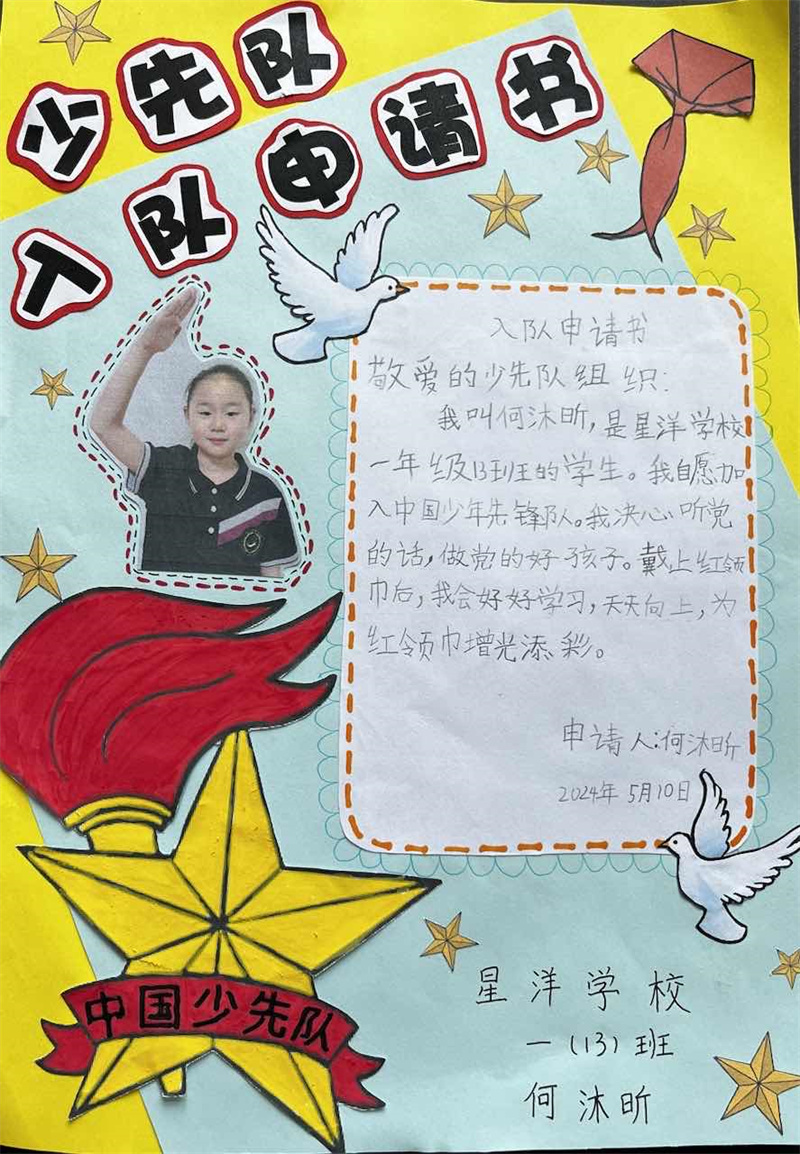 少先队
入队申请书
入队申请书
敬爱的少先队组织：
我叫何沐昕，是星洋学校
一年级13班的学生。我自愿加
入中国少年先锋队。我决心听党
的话，做党的好孩子。戴上红领
巾后，我会好好学习，天天向上，为
红领巾增光添彩。
申请人：何沐昕
2024年5月10日
中国少先队
星洋学校
一（13）班
何沐昕